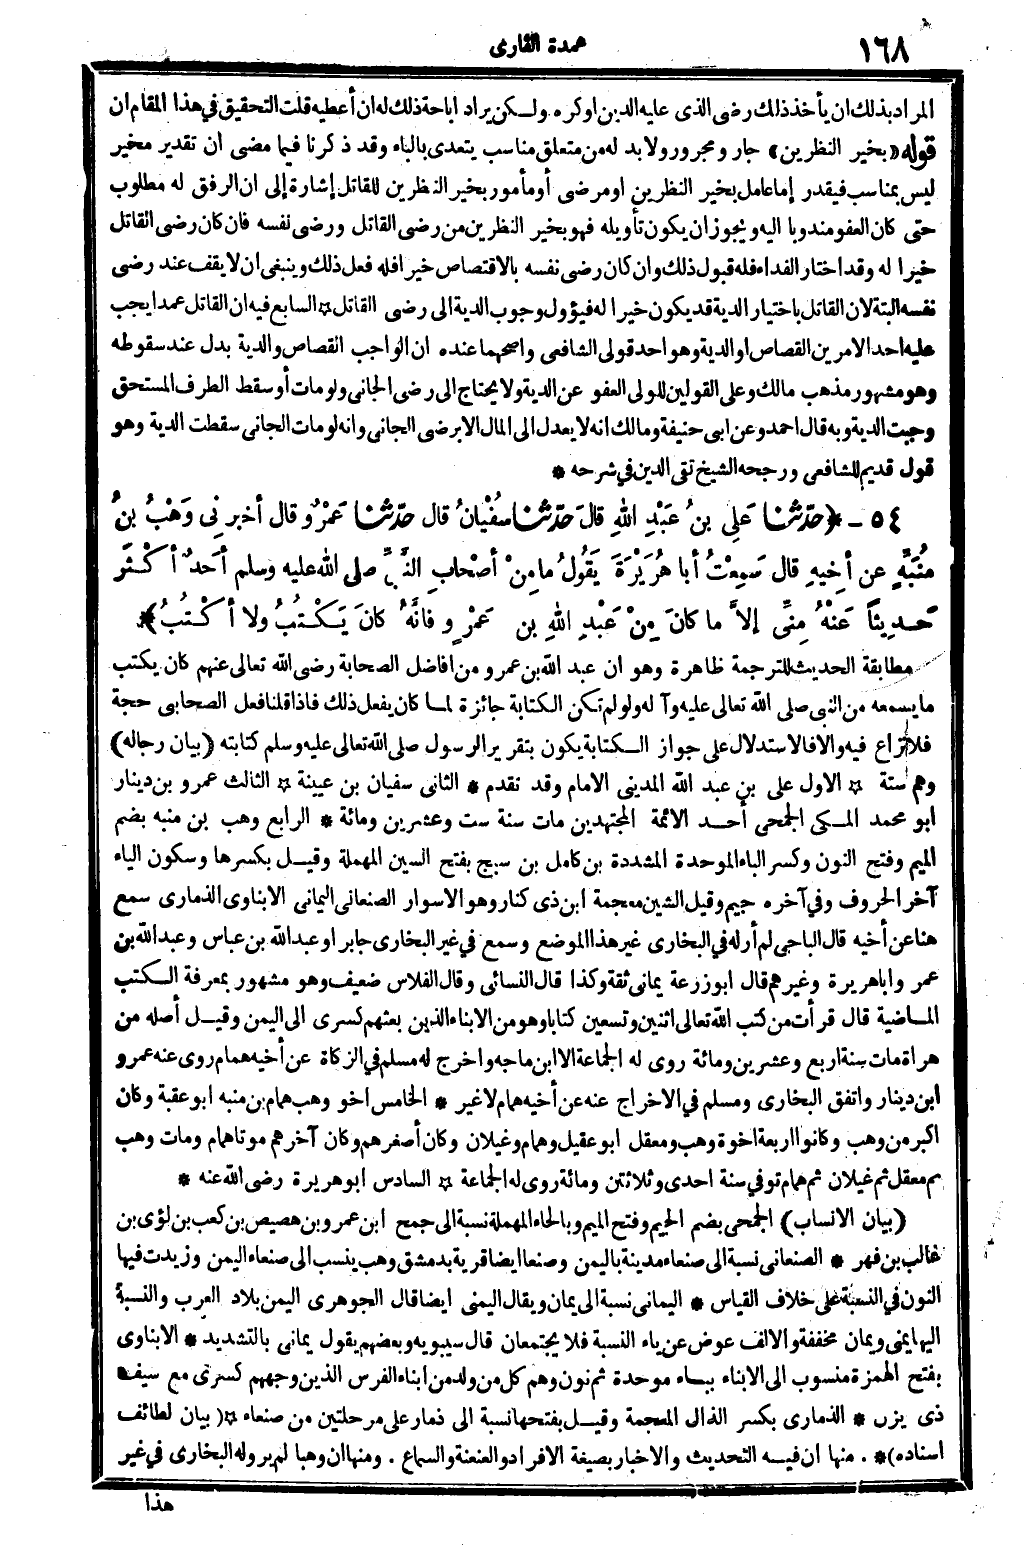 ١٦٨
عمدة القارى
المراد بذلك ان يأخذ ذلك رضى الذى عليه الدين او كره ولكن يراد اباحة ذلك له ان أعطيه قلت التحقيق فى هذا المقام ان
قوله (بخير النظرين) جار ومجرور ولا بد له من متعلق مناسب يتعدى بالباء وقد ذكرنا فيما مضى ان تقدير مخير
ليس بمناسب فيقدر إما عامل بخير النظرين او مرضى أو مأمور بخير النظرين للقاتل إشارة إلى ان الرفق له مطلوب
حتى كان العفو مندوبا اليه ويجوز ان يكون تأويله فهو بخير النظرين من رضى القاتل ورضى نفسه فان كان رضى القاتل
خيرا له وقد اختار الفداء فله قبول ذلك وان كان رضى نفسه بالاقتصاص خيرا فله فعل ذلك وينبغى ان لا يقف عند رضى
نفسه البتة لان القاتل باختيار الدية قد يكون خيرا له فيؤول وجوب الدية الى رضى القاتل ☆ السابع فيه ان القاتل عمدا يجب
عليه احد الامرين القصاص او الدية وهو احد قولى الشافعى واصحهما عنده ان الواجب القصاص والدية بدل عند سقوطه
وهو مشهور مذهب مالك وعلى القولين للولى العفو عن الدية ولا يحتاج الى رضى الجانى ولو مات أو سقط الطرف المستحق
وجبت الدية وبه قال احمد وعن ابى حنيفة ومالك انه لا يعدل الى المال الا برضى الجانى وانه لو مات الجانى سقطت الدية وهو
قول قديم للشافعى ورجحه الشيخ تقى الدين فى شرحه *
٥٤ - ﴿ حَدَّثَنَا عَلِى بنُ عَبْدِ اللهِ قالَ حَدَّثَنا سُفْيَانُ قال حَدَّثَنا عَمْرٌو قال أخبرنِى وَهْبُ بنُ
مُنَبِّهٍ عن أخِيهِ قال سَمِعْتُ أبا هُرَيْرَةَ يَقُولُ ما مِنْ أصْحَابِ النَّبِىِّ صلى الله عليه وسلم أحَدٌ أكْثَرَ
حَدِيثاً عَنْهُ مِنِّى إلاَّ ما كانَ مِنْ عَبْدِ اللهِ بنِ عَمْرٍو فانَّهُ كانَ يَكْتُبُ ولا أكْتُبُ ﴾
مطابقة الحديث للترجمة ظاهرة وهو ان عبد الله بن عمرو من افاضل الصحابة رضى الله تعالى عنهم كان يكتب
ما يسمعه من النبى صلى الله تعالى عليه وآله ولو لم تكن الكتابة جائزة لما كان يفعل ذلك فاذا قلنا فعل الصحابى حجة
فلا نزاع فيه والا فالاستدلال على جواز الكتابة يكون بتقرير الرسول صلى الله تعالى عليه وسلم كتابته (بيان رجاله)
وهم ستة ☆ الاول على بن عبد الله المدينى الامام وقد تقدم * الثانى سفيان بن عيينة ☆ الثالث عمرو بن دينار
ابو محمد المكى الجمحى أحد الائمة المجتهدين مات سنة ست وعشرين ومائة * الرابع وهب بن منبه بضم
الميم وفتح النون وكسر الباء الموحدة المشددة بن كامل بن سيج بفتح السين المهملة وقيل بكسرها وسكون الياء
آخر الحروف وفى آخره جيم وقيل الشين معجمة ابن ذى كنار وهو الاسوار الصنعانى اليمانى الابناوى الذمارى سمع
هنا عن أخيه قال الباجى لم أر له فى البخارى غير هذا الموضع وسمع فى غير البخارى جابرا وعبد الله بن عباس وعبد الله بن
عمر وابا هريرة وغيرهم قال ابو زرعة يمانى ثقة وكذا قال النسائى وقال الفلاس ضعيف وهو مشهور بمعرفة الكتب
الماضية قال قرأت من كتب الله تعالى اثنين وتسعين كتابا وهو من الابناء الذين بعثهم كسرى الى اليمن وقيل أصله من
هراة مات سنة اربع وعشرين ومائة روى له الجماعة الا ابن ماجه واخرج له مسلم فى الزكاة عن أخيه همام روى عنه عمرو
ابن دينار واتفق البخارى ومسلم فى الاخراج عنه عن أخيه همام لا غير * الخامس اخو وهب همام بن منبه ابو عقبة وكان
اكبر من وهب وكانوا اربعة اخوة وهب ومعقل ابو عقيل وهمام وغيلان وكان أصغرهم وكان آخرهم موتا همام ومات وهب
ثم معقل ثم غيلان ثم همام توفى سنة احدى وثلاثين ومائة روى له الجماعة ☆ السادس ابو هريرة رضى الله عنه *
(بيان الانساب) الجمحى بضم الجيم وفتح الميم وبالحاء المهملة نسبة الى جمح ابن عمرو بن هصيص بن كعب بن لؤى بن
غالب بن فهر * الصنعانى نسبة الى صنعاء مدينة باليمن وصنعا ايضا قرية بدمشق وهب ينسب الى صنعاء اليمن وزيدت فيها
النون فى النسبة على خلاف القياس * اليمانى نسبة الى يمان ويقال اليمنى ايضا قال الجوهرى اليمن بلاد العرب والنسبة
اليها يمنى ويمان مخففة والالف عوض عن ياء النسبة فلا يجتمعان قال سيبويه وبعضهم يقول يمانى بالتشديد * الابناوى
بفتح الهمزة منسوب الى الابناء بباء موحدة ثم نون وهم كل من ولد من ابناء الفرس الذين وجههم كسرى مع سيف
ذى يزن * الذمارى بكسر الذال المعجمة وقيل بفتحها نسبة الى ذمار على مرحلتين من صنعاء ☆ (بيان لطائف
اسناده) * . منها ان فيه التحديث والاخبار بصيغة الافراد والعنعنة والسماع . ومنها ان وهبا لم يرو له البخارى فى غير
هذا